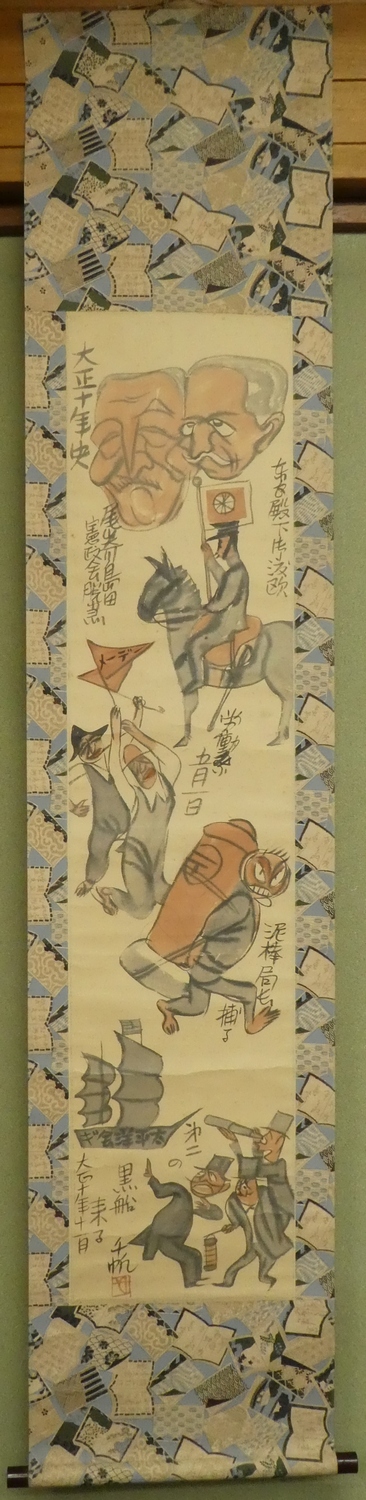 大正十年史
東宮殿下御渡欧
尾崎島田
憲政会脱黨
メーデー
労働祭
五月一日
泥棒局長
捕る
太平洋会議
第二
の
黒船
来る
大正十年十一月
千帆